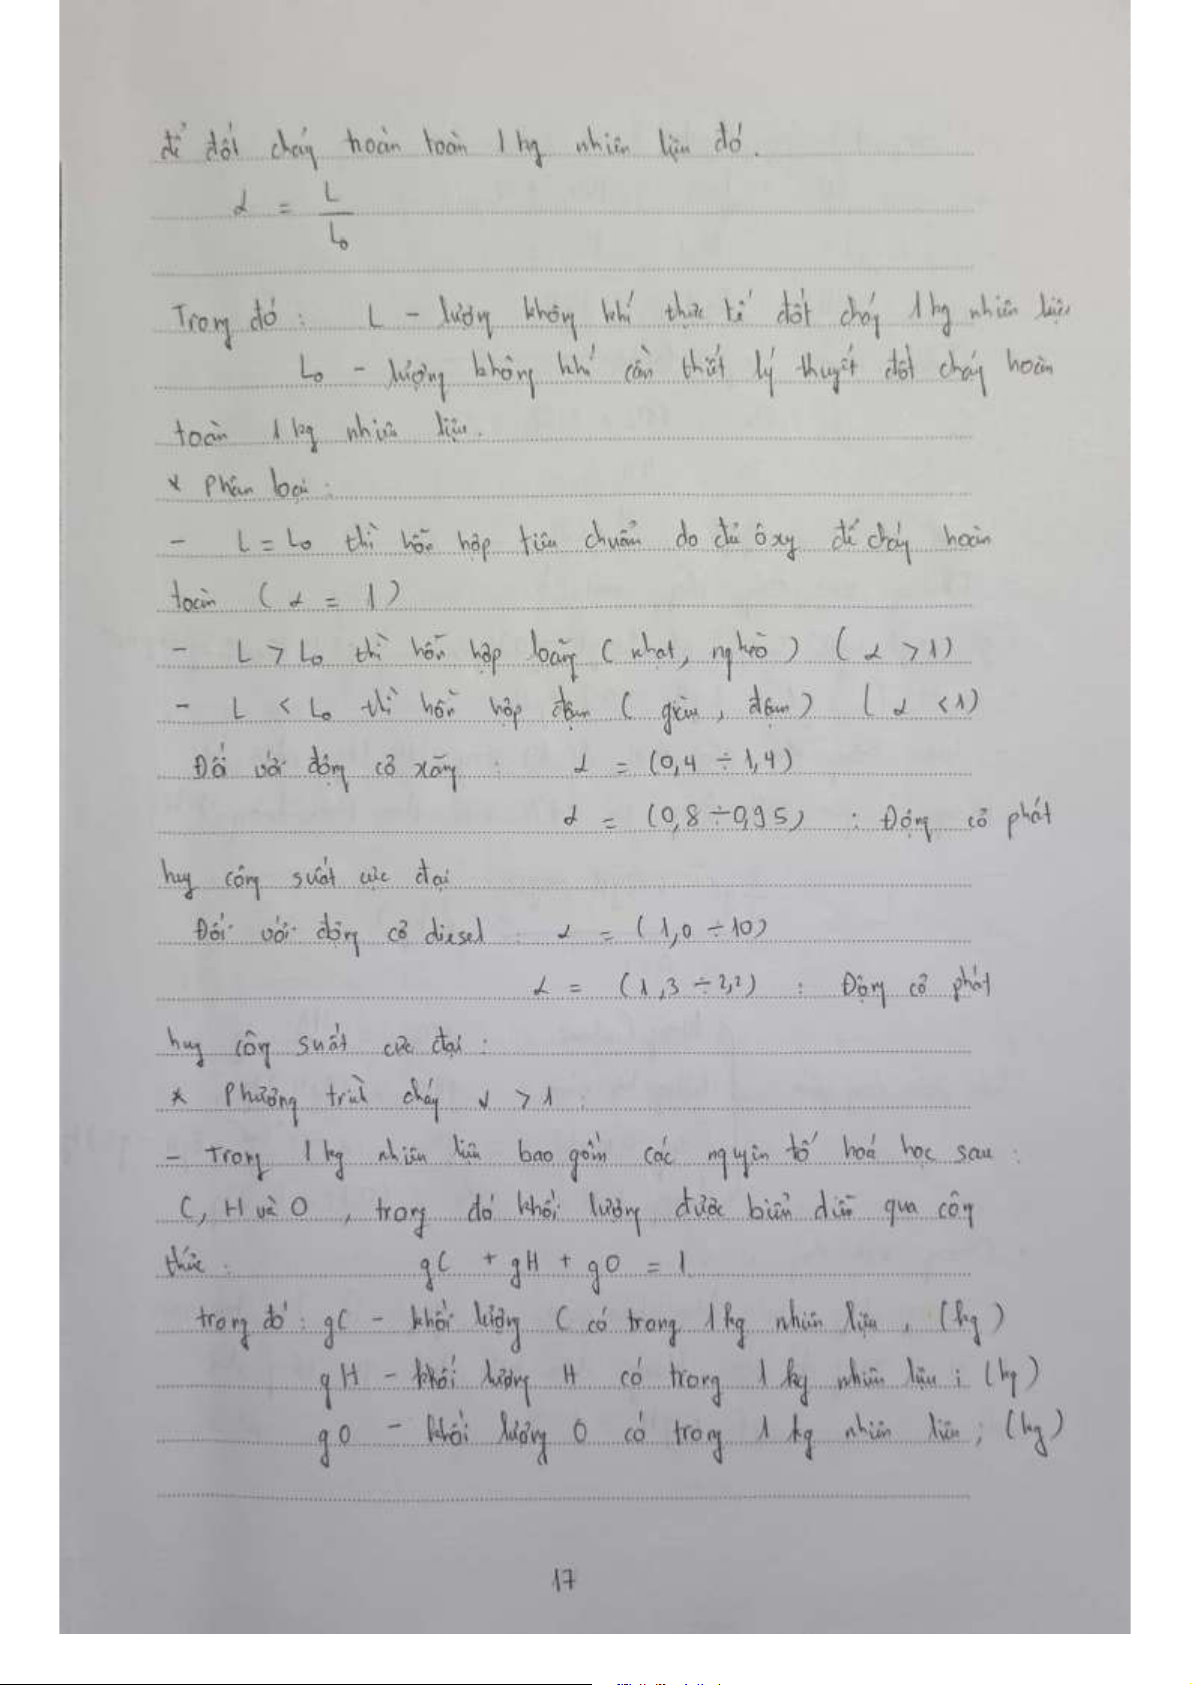 để đốt cháy hoàn toàn 1 kg nhiên liệu đó.
α = L / L₀
Trong đó : L - lượng không khí thực tế đốt cháy 1 kg nhiên liệu
L₀ - lượng không khí cần thiết lý thuyết đốt cháy hoàn
toàn 1 kg nhiên liệu.
* Phân loại :
- L = L₀ thì hỗn hợp tiêu chuẩn do đủ ôxy để cháy hoàn
toàn ( α = 1 )
- L > L₀ thì hỗn hợp loãng ( nhạt, nghèo ) ( α > 1 )
- L < L₀ thì hỗn hợp đậm ( giàu , đậm ) ( α < 1 )
Đối với động cơ xăng : α = (0,4 ÷ 1,4)
α = (0,8 ÷ 0,95) : Động cơ phát
huy công suất cực đại
Đối với động cơ diesel : α = ( 1,0 ÷ 10)
α = ( 1,3 ÷ 2,2) : Động cơ phát
huy công suất cực đại :
* Phương trình cháy α > 1 :
- Trong 1 kg nhiên liệu bao gồm các nguyên tố hoá học sau :
C, H và O , trong đó khối lượng được biểu diễn qua công
thức : gC + gH + gO = 1
trong đó : gC - khối lượng C có trong 1 kg nhiên liệu , (kg)
gH - khối lượng H có trong 1 kg nhiên liệu ; (kg)
gO - khối lượng O có trong 1 kg nhiên liệu ; (kg)
17